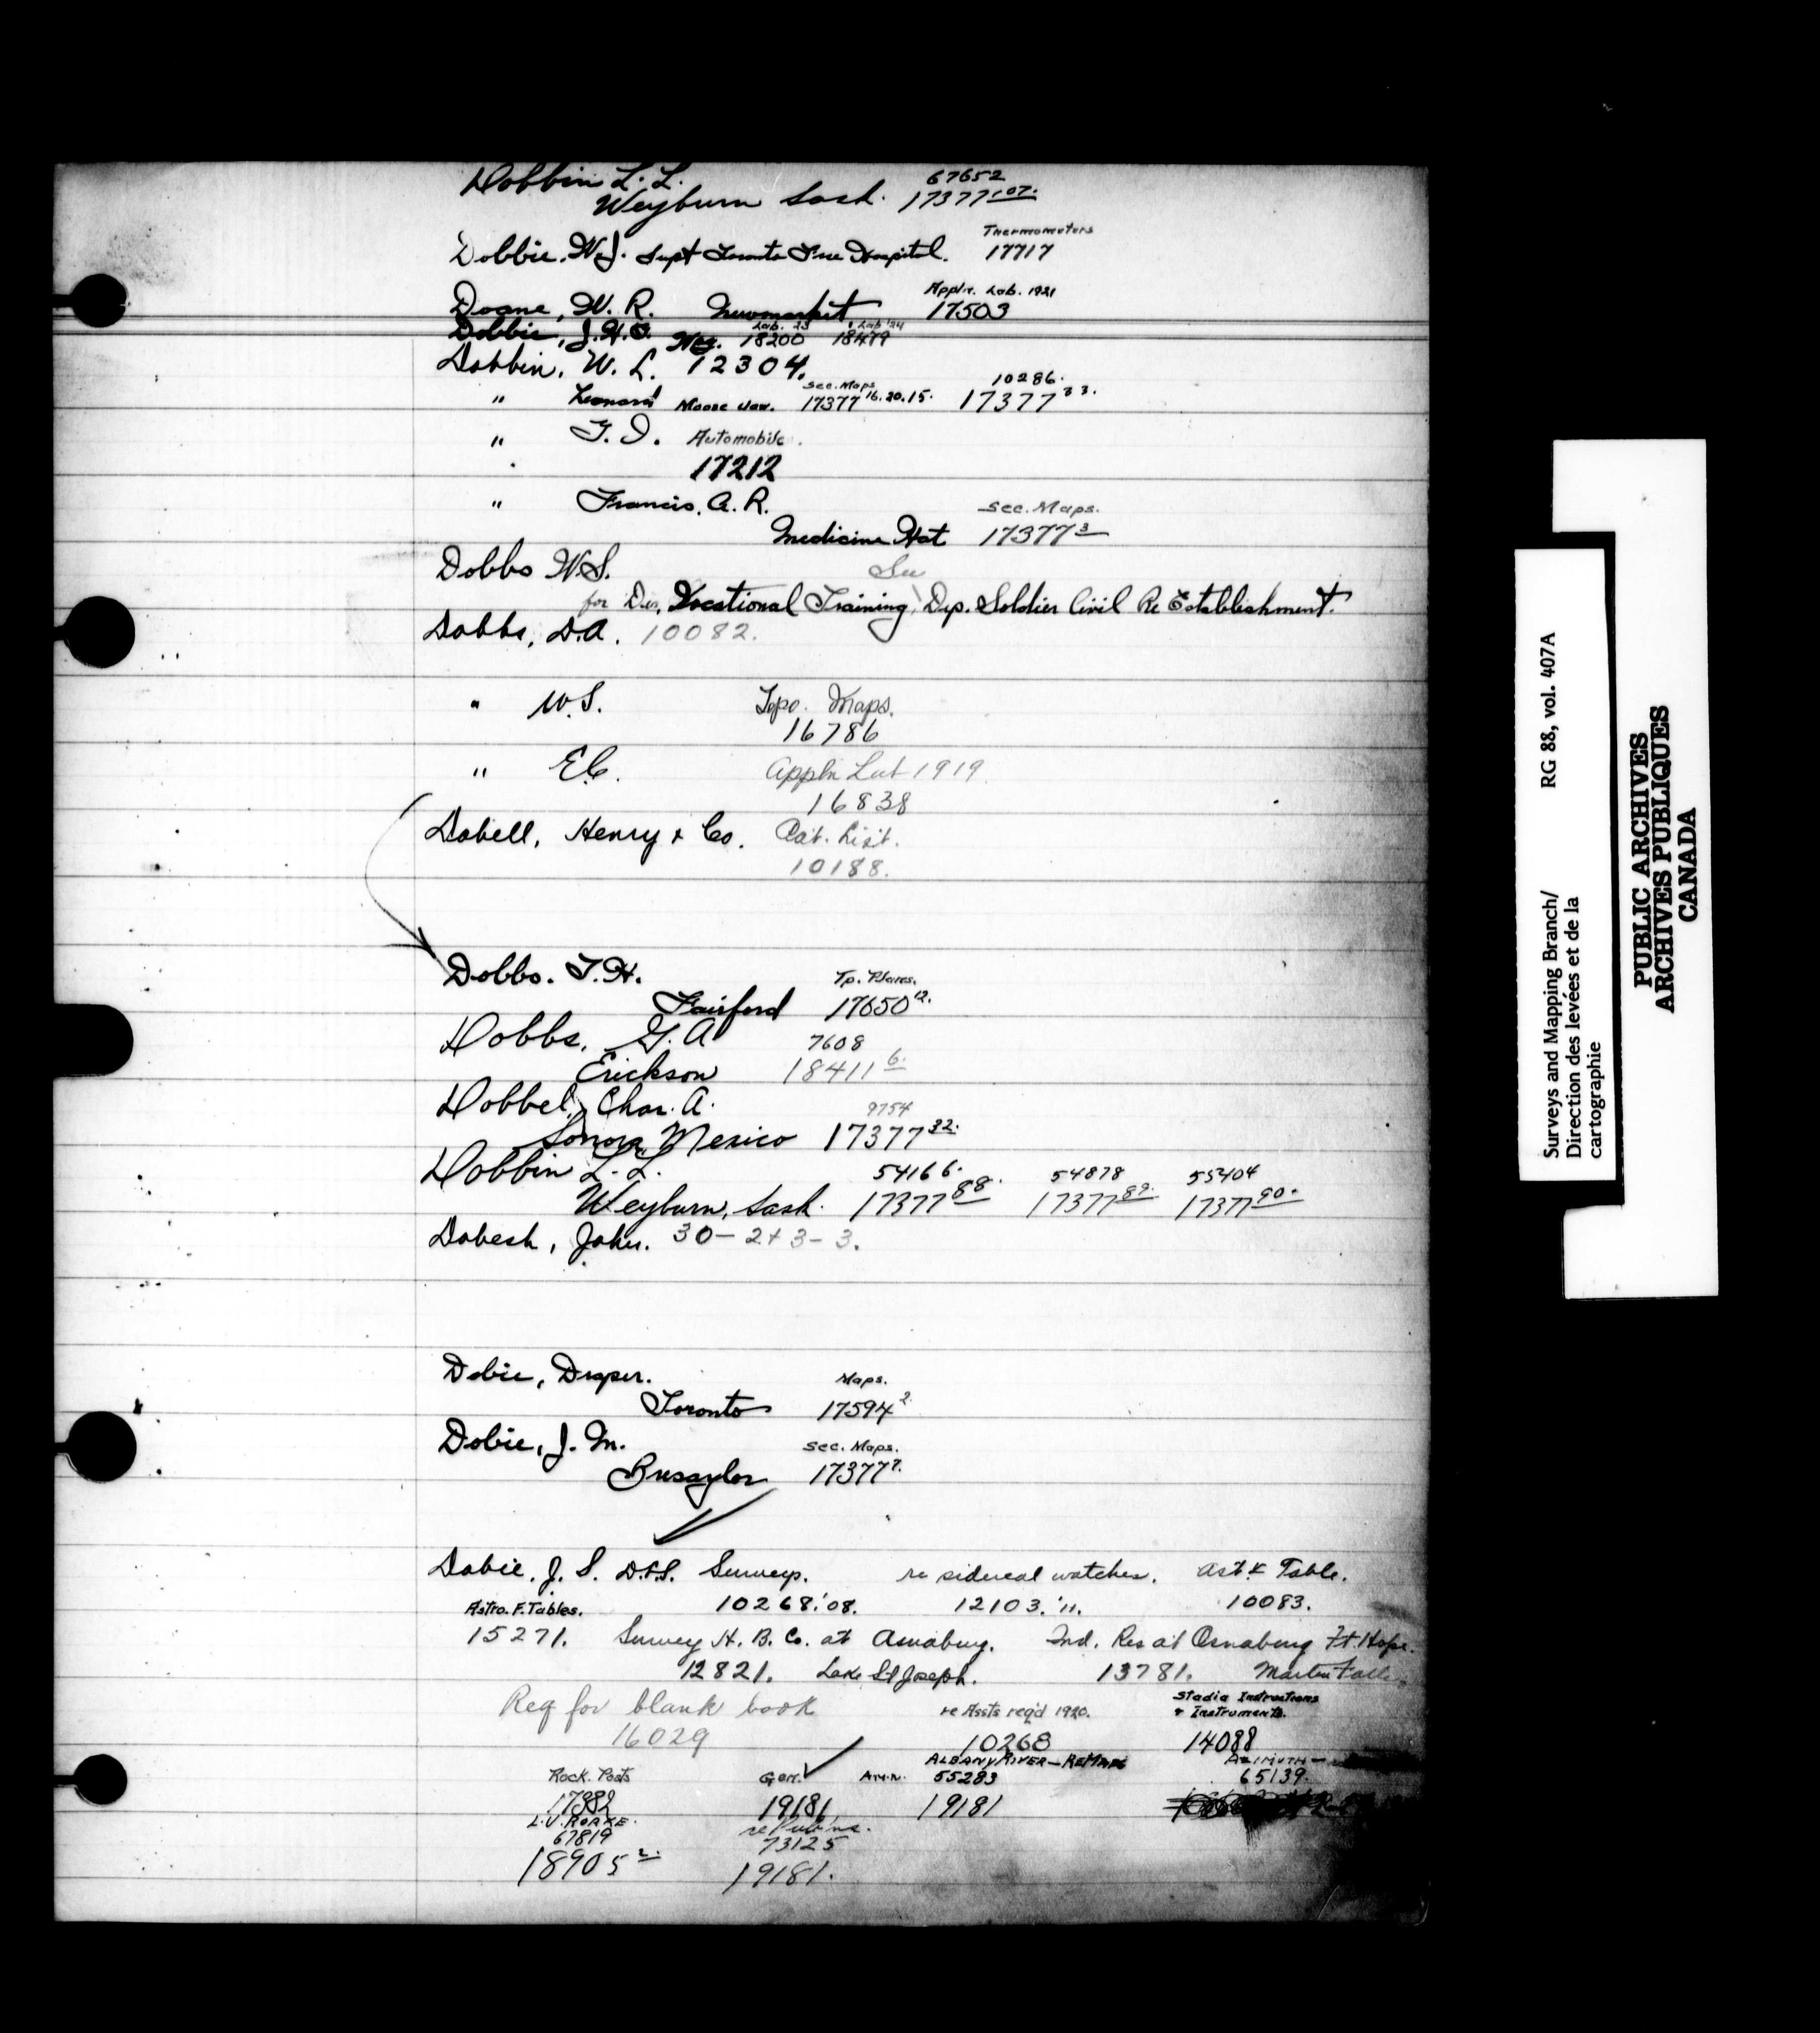 Dobbin L. L. 67652
Weyburn Sask. 17377 107.
Thermometers
Dobbie, W.J. Supt Toronto Free Hospital. 17717
Appln. Lab. 1921
Doane, W. R. Newmarket 17503
Dobbie, J. H. Lab. 23 Lab '24
18200 18479
Dobbin, W. L. 12304.
Sec. Maps 10286.
" Leonard Moose Jaw. 17377 16.20.15. 17377 33.
" T. I. Automobile.
17212
" Francis, A. R. Sec. Maps.
Medicine Hat 17377 3
Dobbs W.S. See
for Des, Vocational Training, Dep. Soldier Civil Re Establishment.
Dobbs, D.A. 10082.
" W.S. Topo. Maps.
16786
" E.C. Appln Lab 1919
16838
Dobell, Henry & Co. Cat. List.
10188.
Dobbs. T. H. Tp. Plans.
Fairford 17650 12.
Dobbs, G. A 7608
Erickson 18411 6.
Dobbel, Chas. A. 9754
Sonora Mexico 17377 32.
Dobbin L. L. 54166. 54878 55404
Weyburn, Sask. 17377 88. 17377 89. 17377 90.
Dobesh, John. 30-2+3-3.
Dobie, Draper. Maps.
Toronto 17594 2.
Dobie, J. M. Sec. Maps.
17377 7.
Dobie, J. S. D.L.S. Surveys. re sidereal watches. Ast. F. Table.
Astro. F. Tables. 10268.'08. 12103.'11. 10083.
15271. Survey H. B. Co. at Osnaburg. Ind. Res at Osnaburg Ft. Hope.
12821. Lake St Joseph. 13781. Marten Falls
Req for blank book re Assts req'd 1920. Stadia Instructions
& Instruments.
16029 10268 14088
ALBANY RIVER - RE MAPS AZIMUTH -
Rock. Posts Gen. 55283 65139.
17382 19181 19181
L.V. RORKE. re Pub'ns.
67819 73125
18905 2. 19181.
Surveys and Mapping Branch/ RG 88, vol. 407A
Direction des levées et de la
cartographie
PUBLIC ARCHIVES
ARCHIVES PUBLIQUES
CANADA